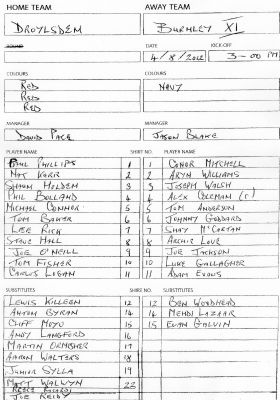 HOME TEAM AWAY TEAM
DROYLSDEN BURNLEY XI
DATE KICK-OFF
4/8/2012 3-00 PM
COLOURS COLOURS
RED NAVY
RED
RED
MANAGER MANAGER
DAVID PACE JASON BLAKE
PLAYER NAME SHIRT NO. PLAYER NAME
PAUL PHILLIPS 1 1 CONOR MITCHELL
MAT KERR 2 2 ARYN WILLIAMS
SHAUN HOLDEN 3 3 JOSEPH WALSH
PHIL BOLLAND 4 4 ALEX COLEMAN (C)
MICHAEL CONNOR 5 5 TOM ANDERSON
TOM BAKER 6 6 JOHNNY GODDARD
LEE RICK 7 7 SHAY McCARTAN
STEVE HALL 8 8 ARCHIE LOVE
JOE O'NEILL 9 9 JOE JACKSON
TOM FISHER 10 10 LUKE GALLAGHER
CARLOS LOGAN 11 11 ADAM EVANS
SUBSTITUTES SHIRT NO. SUBSTITUTES
LEWIS KILLEEN 12 12 BEN WOODHEAD
ANTON BYRAN 14 14 MEHDI LAZAAR
CLIFF MOYO 15 15 EVAN GALVIN
ANDY LANGFORD 16
MARTIN ORMISHER 17
AARON WALTERS 18
JUNIOR SYLLA 19
MATT WALWYN 22
JOE REID